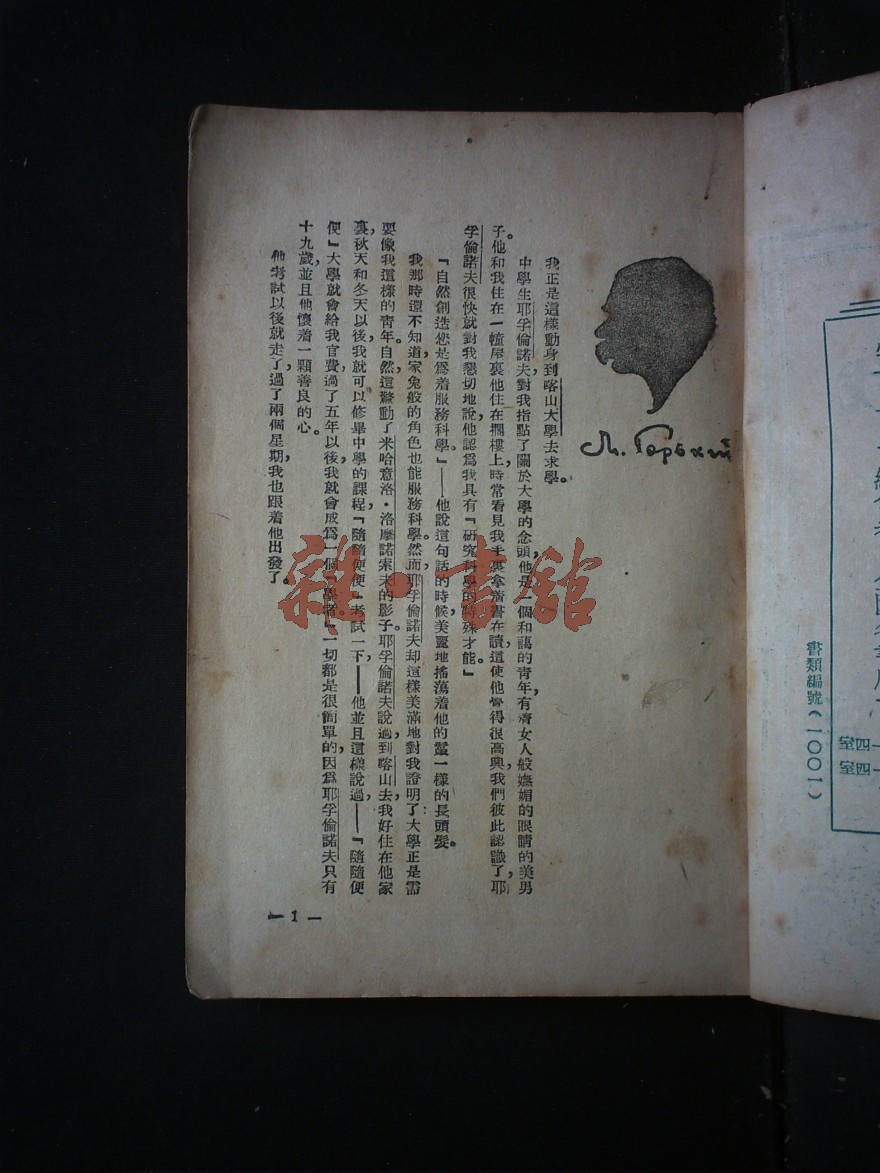 М. Горький
我正是這樣動身到喀山大學去求學。
中學生耶孚倫諾夫對我指點了關於大學的念頭,他是一個和藹的青年,有着女人般嫵媚的眼睛的美男
子。他和我住在一幢屋裏他住在擱樓上,時常看見我手裏拿着書在讀,這使他覺得很高興,我們彼此認識了,耶
孚倫諾夫很快就對我懇切地說,他認爲我具有『研究科學的特殊才能。』
『自然創造您是爲着服務科學。』——他說這句話的時候,美麗地搖蕩着他的鬣一樣的長頭髮。
我那時還不知道家兔般的角色也能服務科學。然而耶孚倫諾夫却這樣美滿地對我證明了:大學正是需
要像我這樣的青年。自然,這驚動了米哈意洛·洛摩諾索夫的影子。耶孚倫諾夫說過,到喀山去,我好住在他家
裏,秋天和冬天以後,我就可以修畢中學的課程,『隨隨便便』考試一下,——他並且這樣說過——『隨隨便
便』大學就會給我官費,過了五年以後,我就會成爲一個『學者』。一切都是很簡單的,因爲耶孚倫諾夫只有
十九歲,並且他懷着一顆善良的心。
他考試以後就走了,過了兩個星期,我也跟着他出發了。
— 1 —
書類編號(1001)
雜·書館